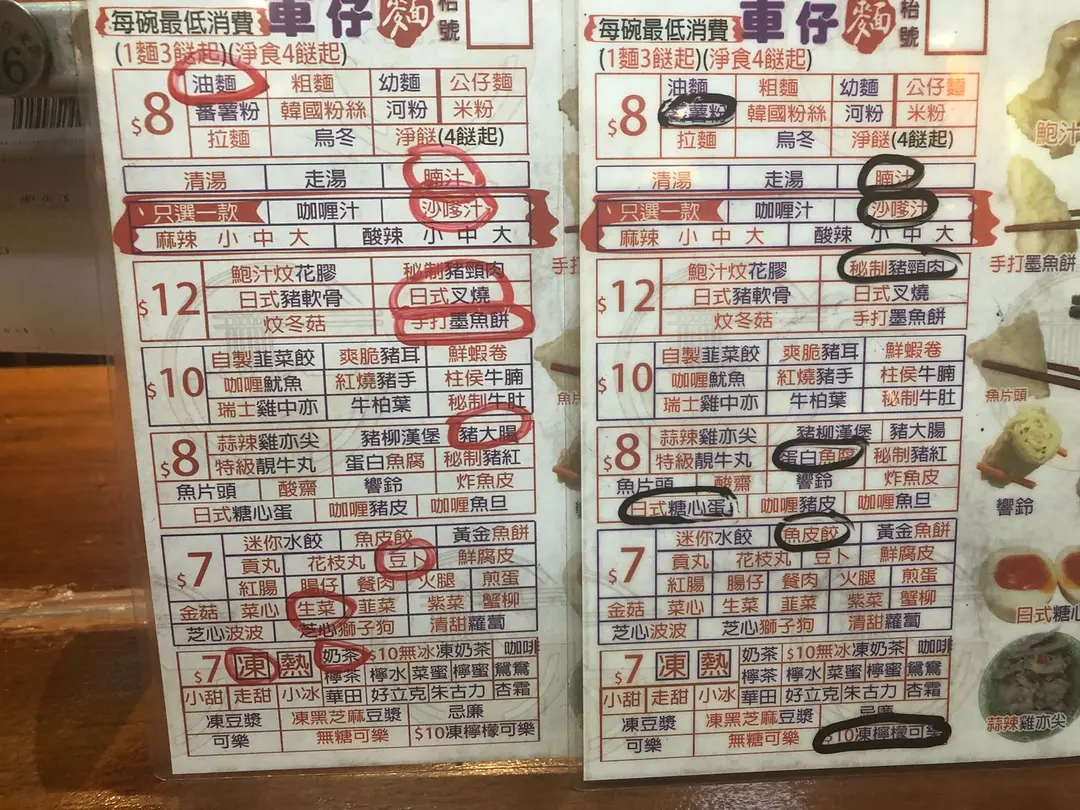 每碗最低消費 車仔麵 枱號
(1麵3餸起)(淨食4餸起)
$8 油麵 粗麵 幼麵 公仔麵
蕃薯粉 韓國粉絲 河粉 米粉
拉麵 烏冬 淨餸(4餸起)
清湯 走湯 腩汁
只選一款 咖喱汁 沙嗲汁
麻辣 小 中 大 酸辣 小 中 大
$12 鮑汁炆花膠 秘制豬頸肉
日式豬軟骨 日式叉燒
炆冬菇 手打墨魚餅
$10 自製韮菜餃 爽脆豬耳 鮮蝦卷
咖喱魷魚 紅燒豬手 柱侯牛腩
瑞士雞中亦 牛柏葉 秘制牛肚
$8 蒜辣雞亦尖 豬柳漢堡 豬大腸
特級靚牛丸 蛋白魚腐 秘制豬紅
魚片頭 酸齋 響鈴 炸魚皮
日式糖心蛋 咖喱豬皮 咖喱魚旦
$7 迷你水餃 魚皮餃 黃金魚餅
貢丸 花枝丸 豆卜 鮮腐皮
紅腸 腸仔 餐肉 火腿 煎蛋
金菇 菜心 生菜 韮菜 紫菜 蟹柳
芝心波波 芝心獅子狗 清甜蘿蔔
$7 凍 熱 奶茶 $10無冰凍奶茶 咖啡
檸茶 檸水 菜蜜 檸蜜 鴛鴦
小甜 走甜 小冰 華田 好立克 朱古力 杏霜
凍豆漿 凍黑芝麻豆漿 忌廉
可樂 無糖可樂 $10凍檸檬可樂
每碗最低消費 車仔麵 枱號
(1麵3餸起)(淨食4餸起)
$8 油麵 粗麵 幼麵 公仔麵
薯粉 韓國粉絲 河粉 米粉
拉麵 烏冬 淨餸(4餸起)
清湯 走湯 腩汁
只選一款 咖喱汁 沙嗲汁
麻辣 小 中 大 酸辣 小 中 大
$12 鮑汁炆花膠 秘制豬頸肉
日式豬軟骨 日式叉燒
炆冬菇 手打墨魚餅
$10 自製韮菜餃 爽脆豬耳 鮮蝦卷
咖喱魷魚 紅燒豬手 柱侯牛腩
瑞士雞中亦 牛柏葉 秘制牛肚
$8 蒜辣雞亦尖 豬柳漢堡 豬大腸
特級靚牛丸 蛋白魚腐 秘制豬紅
魚片頭 酸齋 響鈴 炸魚皮
日式糖心蛋 咖喱豬皮 咖喱魚旦
$7 迷你水餃 魚皮餃 黃金魚餅
貢丸 花枝丸 豆卜 鮮腐皮
紅腸 腸仔 餐肉 火腿 煎蛋
金菇 菜心 生菜 韮菜 紫菜 蟹柳
芝心波波 芝心獅子狗 清甜蘿蔔
$7 凍 熱 奶茶 $10無冰凍奶茶 咖啡
檸茶 檸水 菜蜜 檸蜜 鴛鴦
小甜 走甜 小冰 華田 好立克 朱古力 杏霜
凍豆漿 凍黑芝麻豆漿 忌廉
可樂 無糖可樂 $10凍檸檬可樂
鮑汁
手打墨魚餅
魚片頭
響鈴
日式糖心
蒜辣雞亦尖
手打
魚片
6